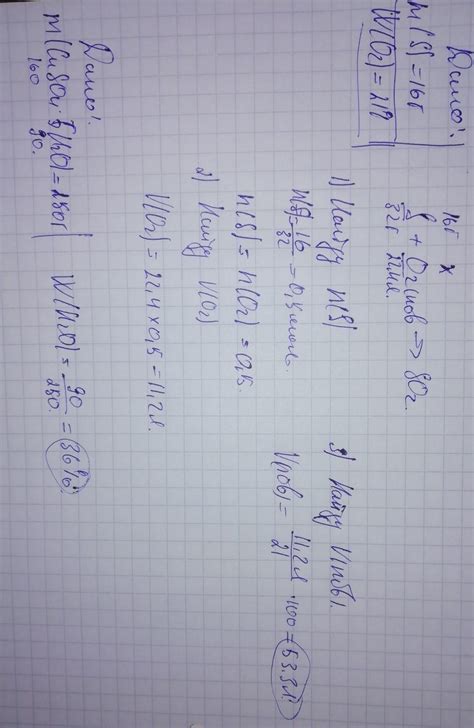 Дано:
m(S)=16г
W(O2)=21%
16г x
S + O2(пов) → SO2
32г 22,4л
1) Найду n(S)
n(S)= 16/32 = 0,5 моль
n(S) = n(O2) = 0,5
2) Найду V(O2)
V(O2) = 22,4 × 0,5 = 11,2л
3) Найду V(пов).
V(пов) = 11,2л/21 · 100 = 53,3л
Дано:
M(CuSO4·5H2O)=250г
160 90.
W(H2O) = 90/250 = 36%